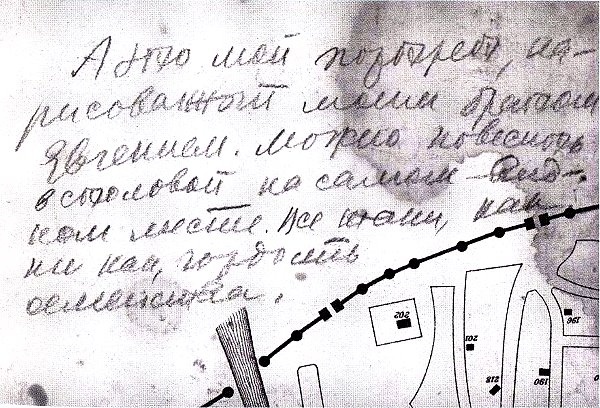 А это мой портрет, на-
рисованный моим братом
Евгением. Можно повесить
в столовой на самом вид-
ном месте. Все таки, как
ни как, гордость
семейства.
202
201
218
190
196